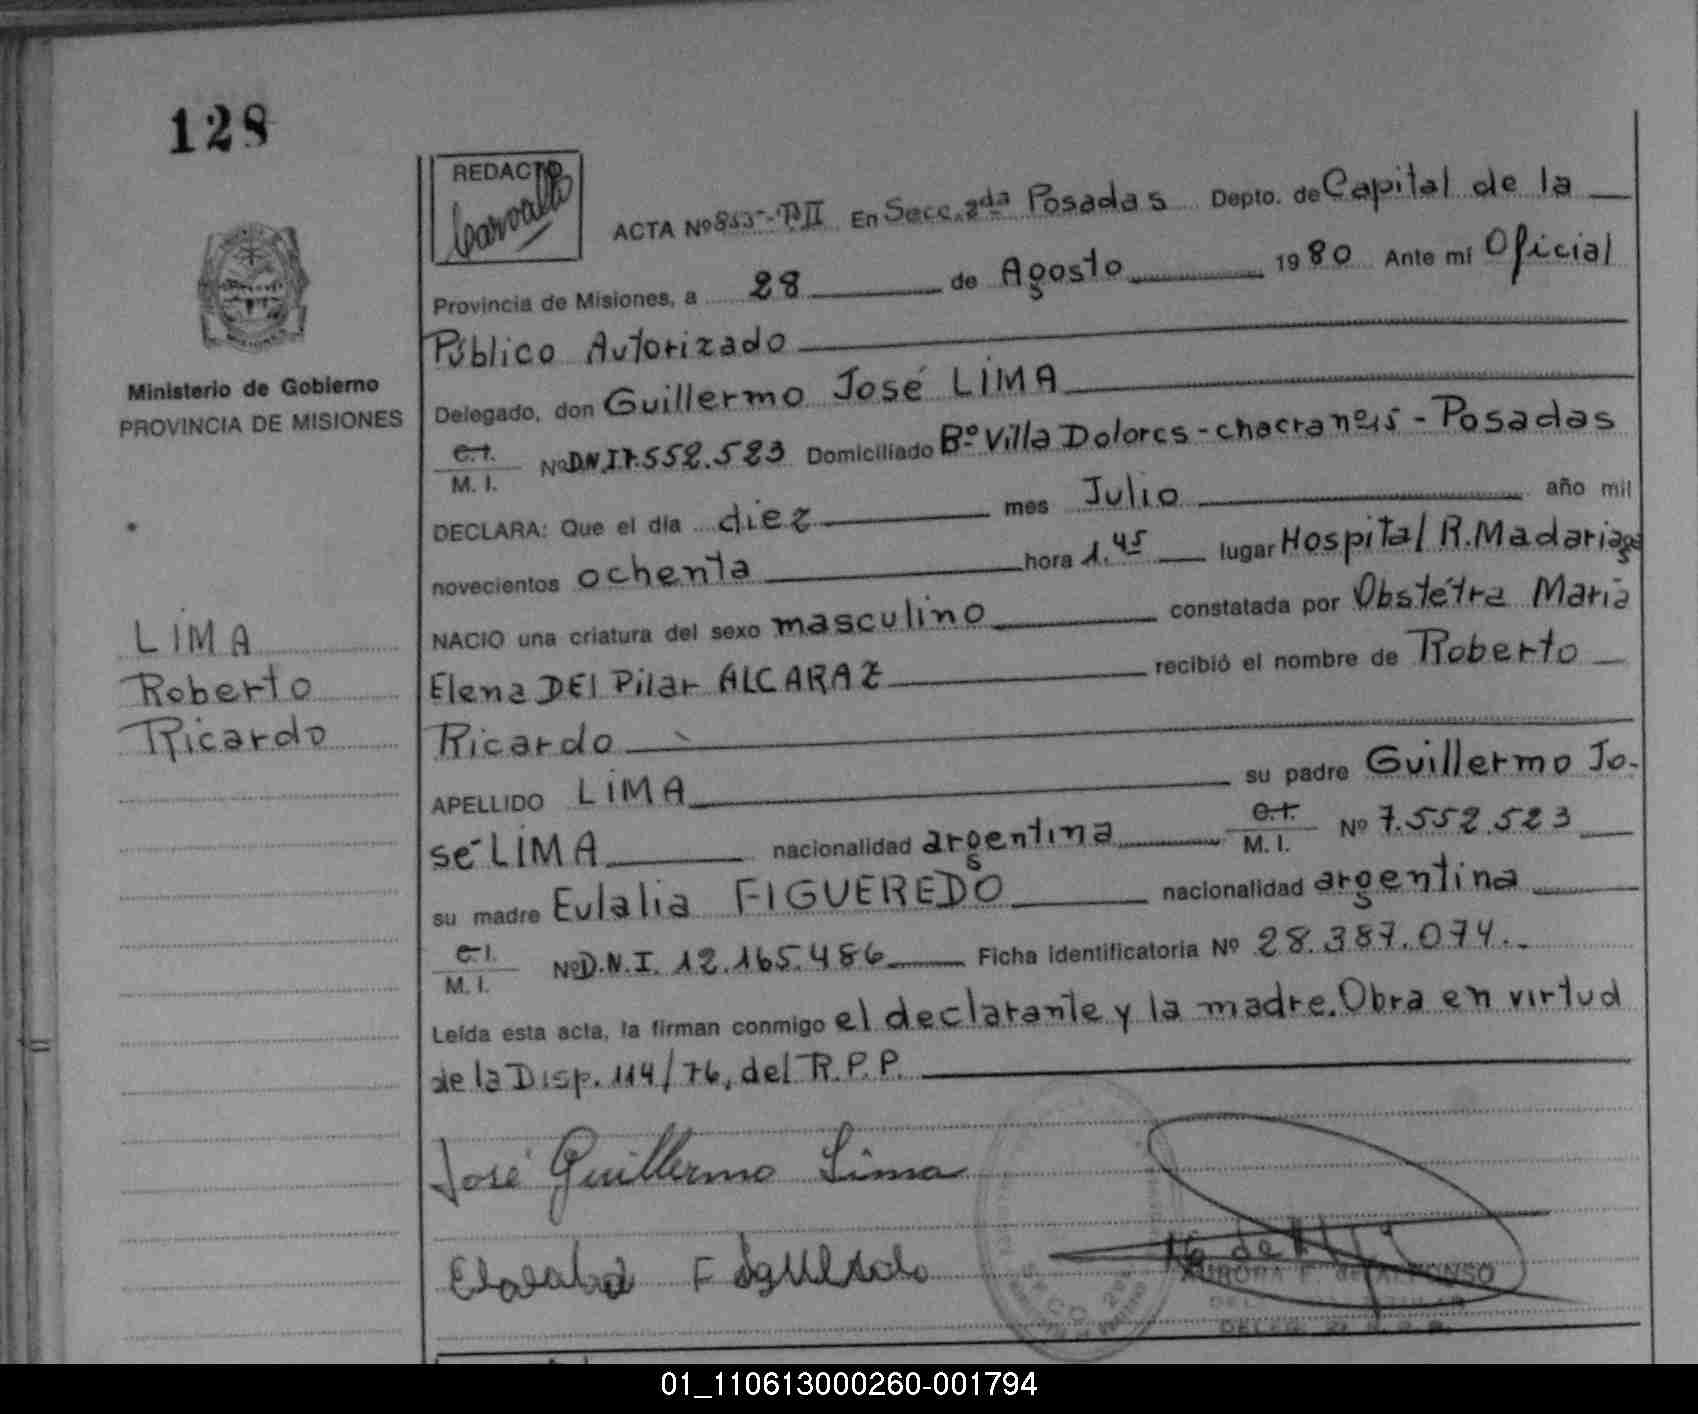 128
REDACTO
Carvallo
ACTA Nº 853-TºII En Secc. 2da Posadas Depto. de Capital de la
Provincia de Misiones, a 28 de Agosto 1980 Ante mí Oficial
Público Autorizado
Ministerio de Gobierno
PROVINCIA DE MISIONES
Delegado, don Guillermo José LIMA
C.I.
M. I.
Nº D.N.I 7.552.523 Domiciliado Bº Villa Dolores - chacra - Posadas
DECLARA: Que el día diez mes Julio año mil
novecientos ochenta hora 1.45 lugar Hospital R. Madariaga
NACIO una criatura del sexo masculino constatada por Obstétra Maria
Elena DEl Pilar ALCARAZ recibió el nombre de Roberto
Ricardo
LIMA
Roberto
Ricardo
APELLIDO LIMA su padre Guillermo Jo-
sé LIMA nacionalidad argentina C.I. M. I. Nº 7.552.523
su madre Eulalia FIGUEREDO nacionalidad argentina
C.I.
M. I.
Nº D.N.I. 12.165.486 Ficha identificatoria Nº 28.387.074.
Leída esta acta, la firman conmigo el declarante y la madre. Obra en virtud
de la Disp. 114/76, del R.P.P.
José Guillermo Lima
SECC. 2da
AURORA F. de ALFONSO
01_110613000260-001794